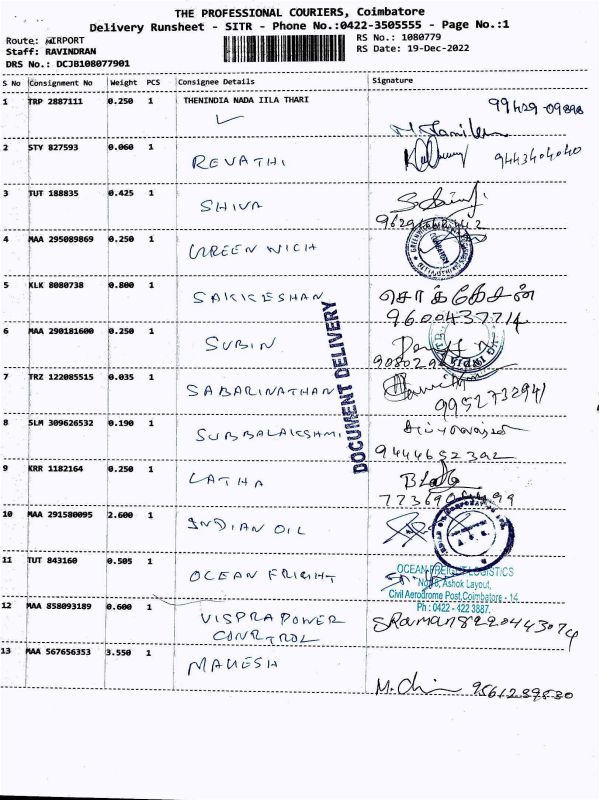 THE PROFESSIONAL COURIERS, Coimbatore
Delivery Runsheet - SITR - Phone No.:0422-3505555 - Page No.:1
Route: AIRPORT RS No.: 1080779
Staff: RAVINDRAN RS Date: 19-Dec-2022
DRS No.: DCJB108077901
S No Consignment No Weight PCS Consignee Details Signature
1 TRP 2887111 0.250 1 THENINDIA NADA IILA THARI 99429-09898
2 STY 827593 0.060 1 REVATHI 9443404040
3 TUT 188835 0.425 1 SHIVA
4 MAA 295089869 0.250 1 GREEN WICH
5 KLK 8080738 0.800 1 SAKKESHAN சொக்கேசன்
9600437714
6 MAA 290181600 0.250 1 SUBIN
7 TRZ 122085515 0.035 1 SABARINATHAN
9952732941
8 SLM 309626532 0.190 1 SUBBALAKSHMI
9444652392
DOCUMENT DELIVERY
9 KRR 1182164 0.250 1 LATHA
10 MAA 291580095 2.600 1 INDIAN OIL
11 TUT 843160 0.505 1 OCEAN FRIGHT
OCEAN FREIGHT LOGISTICS
No. 6, Ashok Layout,
Civil Aerodrome Post, Coimbatore - 14.
Ph : 0422 - 422 3887.
12 MAA 858093189 0.600 1 VISPRA POWER
CONRTROL
SRaman 8220443074
13 MAA 567656353 3.550 1 MAHESH